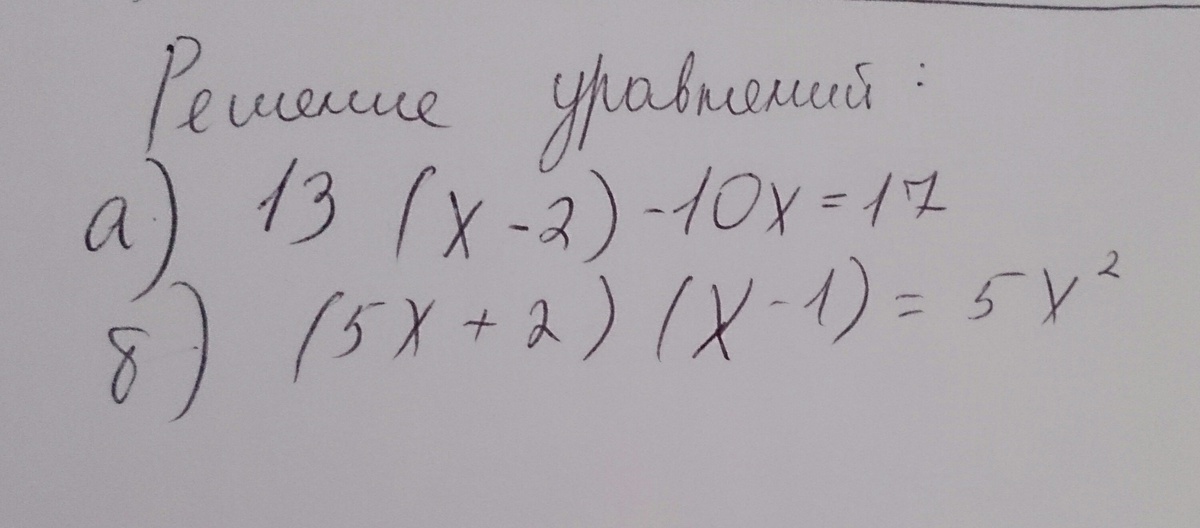 Решение уравнений:
а) 13 (x - 2) - 10x = 17
б) (5x + 2) (x - 1) = 5x²